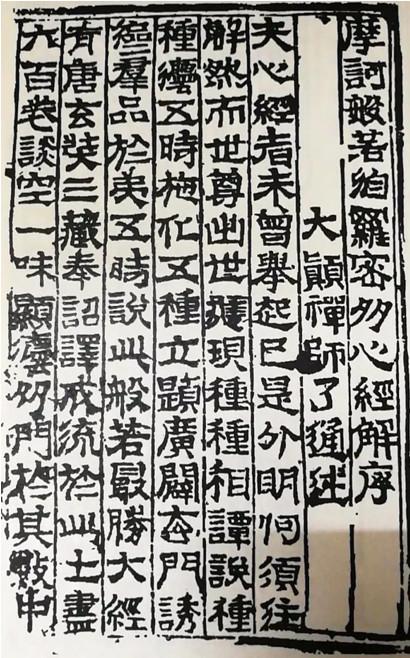 摩訶般若波羅密多心經解序
大顚禪師了通述
夫心經者未曾舉起已是分明何須注
解然而世尊出世現種種相譚說種
種灋五時施化五種立題廣闢玄門誘
羣品於第五時說此般若最勝大經
有唐玄奘三藏奉詔譯成流於此土盡
六百卷談空一味顯灋多門於其數中